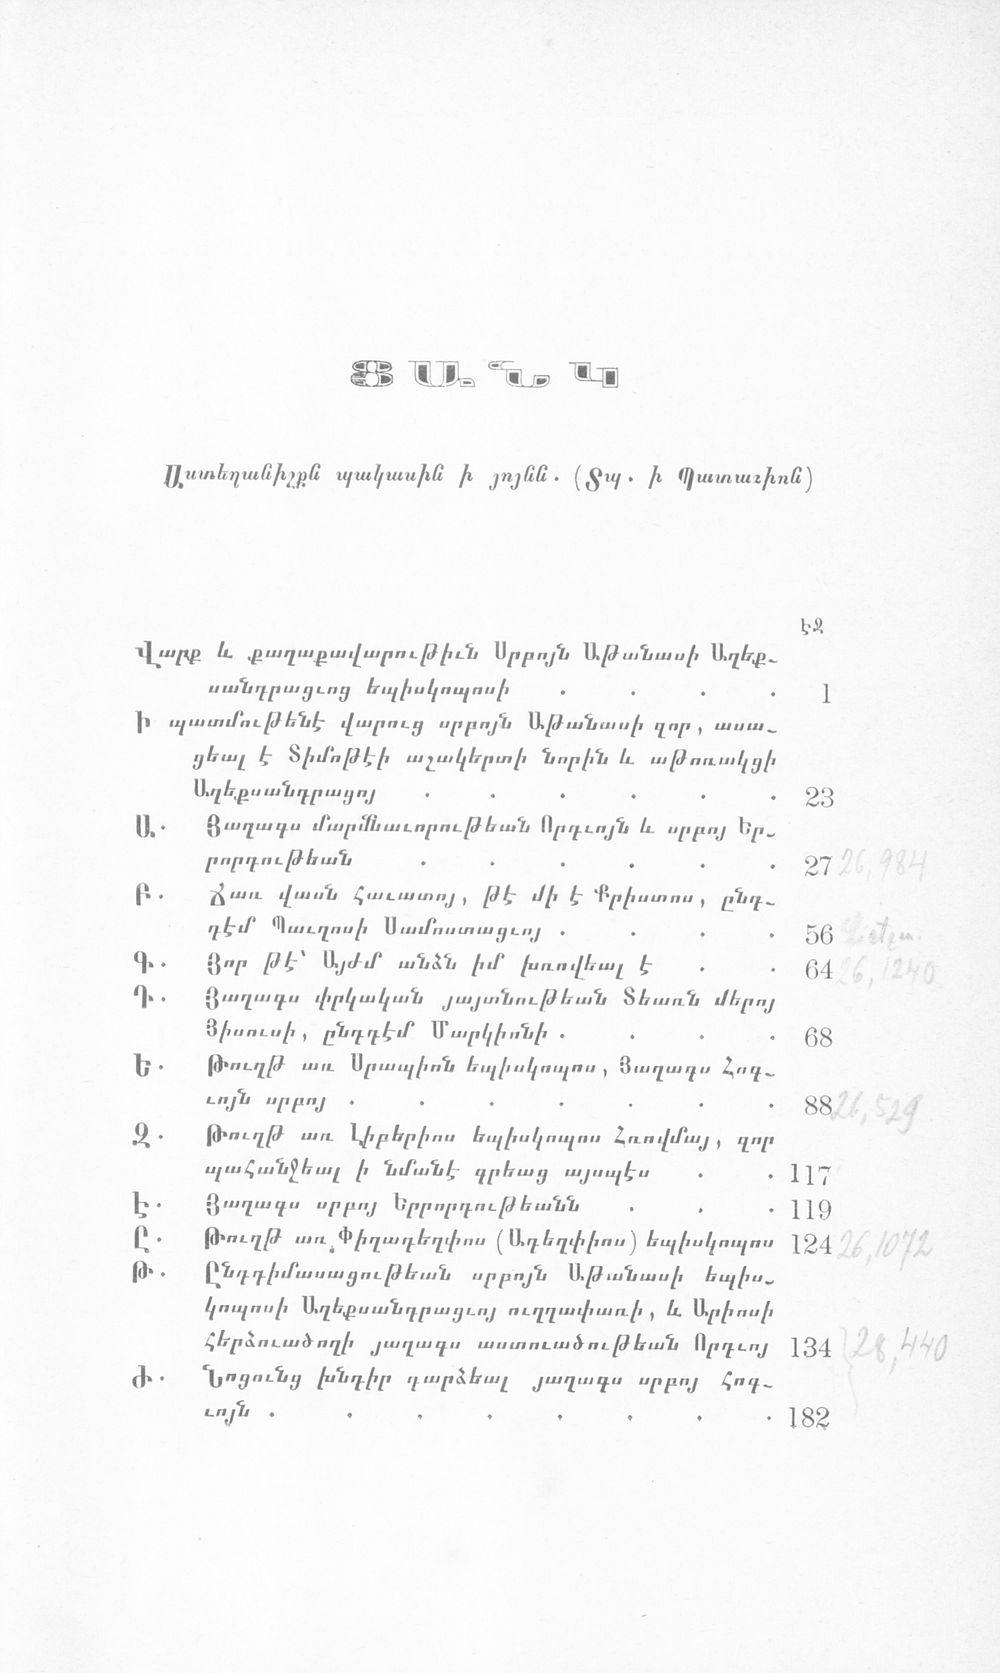 ՑԱՆԿ
Աստեղանիշքն պակասին ի յոյնն. (Տպ. ի Պատաւիոն)
էջ
Վարք և քաղաքավարութիւն Սրբոյն Աթանասի Աղեք-
սանդրացւոց եպիսկոպոսի . . . . 1
Ի պատմութենէ վարուց սրբոյն Աթանասի զոր, ասա-
ցեալ է Տիմոթէի աշակերտի նորին և աթոռակցի
Աղեքսանդրացոյ . . . . . . 23
Ա. Յաղագս մարմնաւորութեան Որդւոյն և սրբոյ Եր-
րորդութեան . . . . . . 27 26,984
Բ. Ճառ վասն Հաւատոյ, թէ մի է Քրիստոս, ընդ-
դէմ Պաւղոսի Սամոստացւոյ . . . . 56
Գ. Յոր թէ՝ Այժմ անձն իմ խռովեալ է . . 64 26,1240
Դ. Յաղագս փրկական յայտնութեան Տեառն մերոյ
Յիսուսի, ընդդէմ Մարկիոնի . . . . 68
Ե. Թուղթ առ Սրապիոն եպիսկոպոս, Յաղագս Հոգ-
ւոյն սրբոյ . . . . . . . 88 26,529
Զ. Թուղթ առ Լիբերիոս եպիսկոպոս Հռովմայ, զոր
պահանջեալ ի նմանէ գրեաց այսպէս . . 117
Է. Յաղագս սրբոյ Երրորդութեանն . . . 119
Ը. Թուղթ առ Փիղադեղփոս (Ադեղփիոս) եպիսկոպոս 124 26,1072
Թ. Ընդդիմասացութեան սրբոյն Աթանասի եպիս-
կոպոսի Աղեքսանդրացւոյ ուղղափառի, և Արիոսի
հերձուածողի յաղագս աստուածութեան Որդւոյ 134 28,440
Ժ. Նոցունց խնդիր դարձեալ յաղագս սրբոյ Հոգ-
ւոյն . . . . . . . . 182